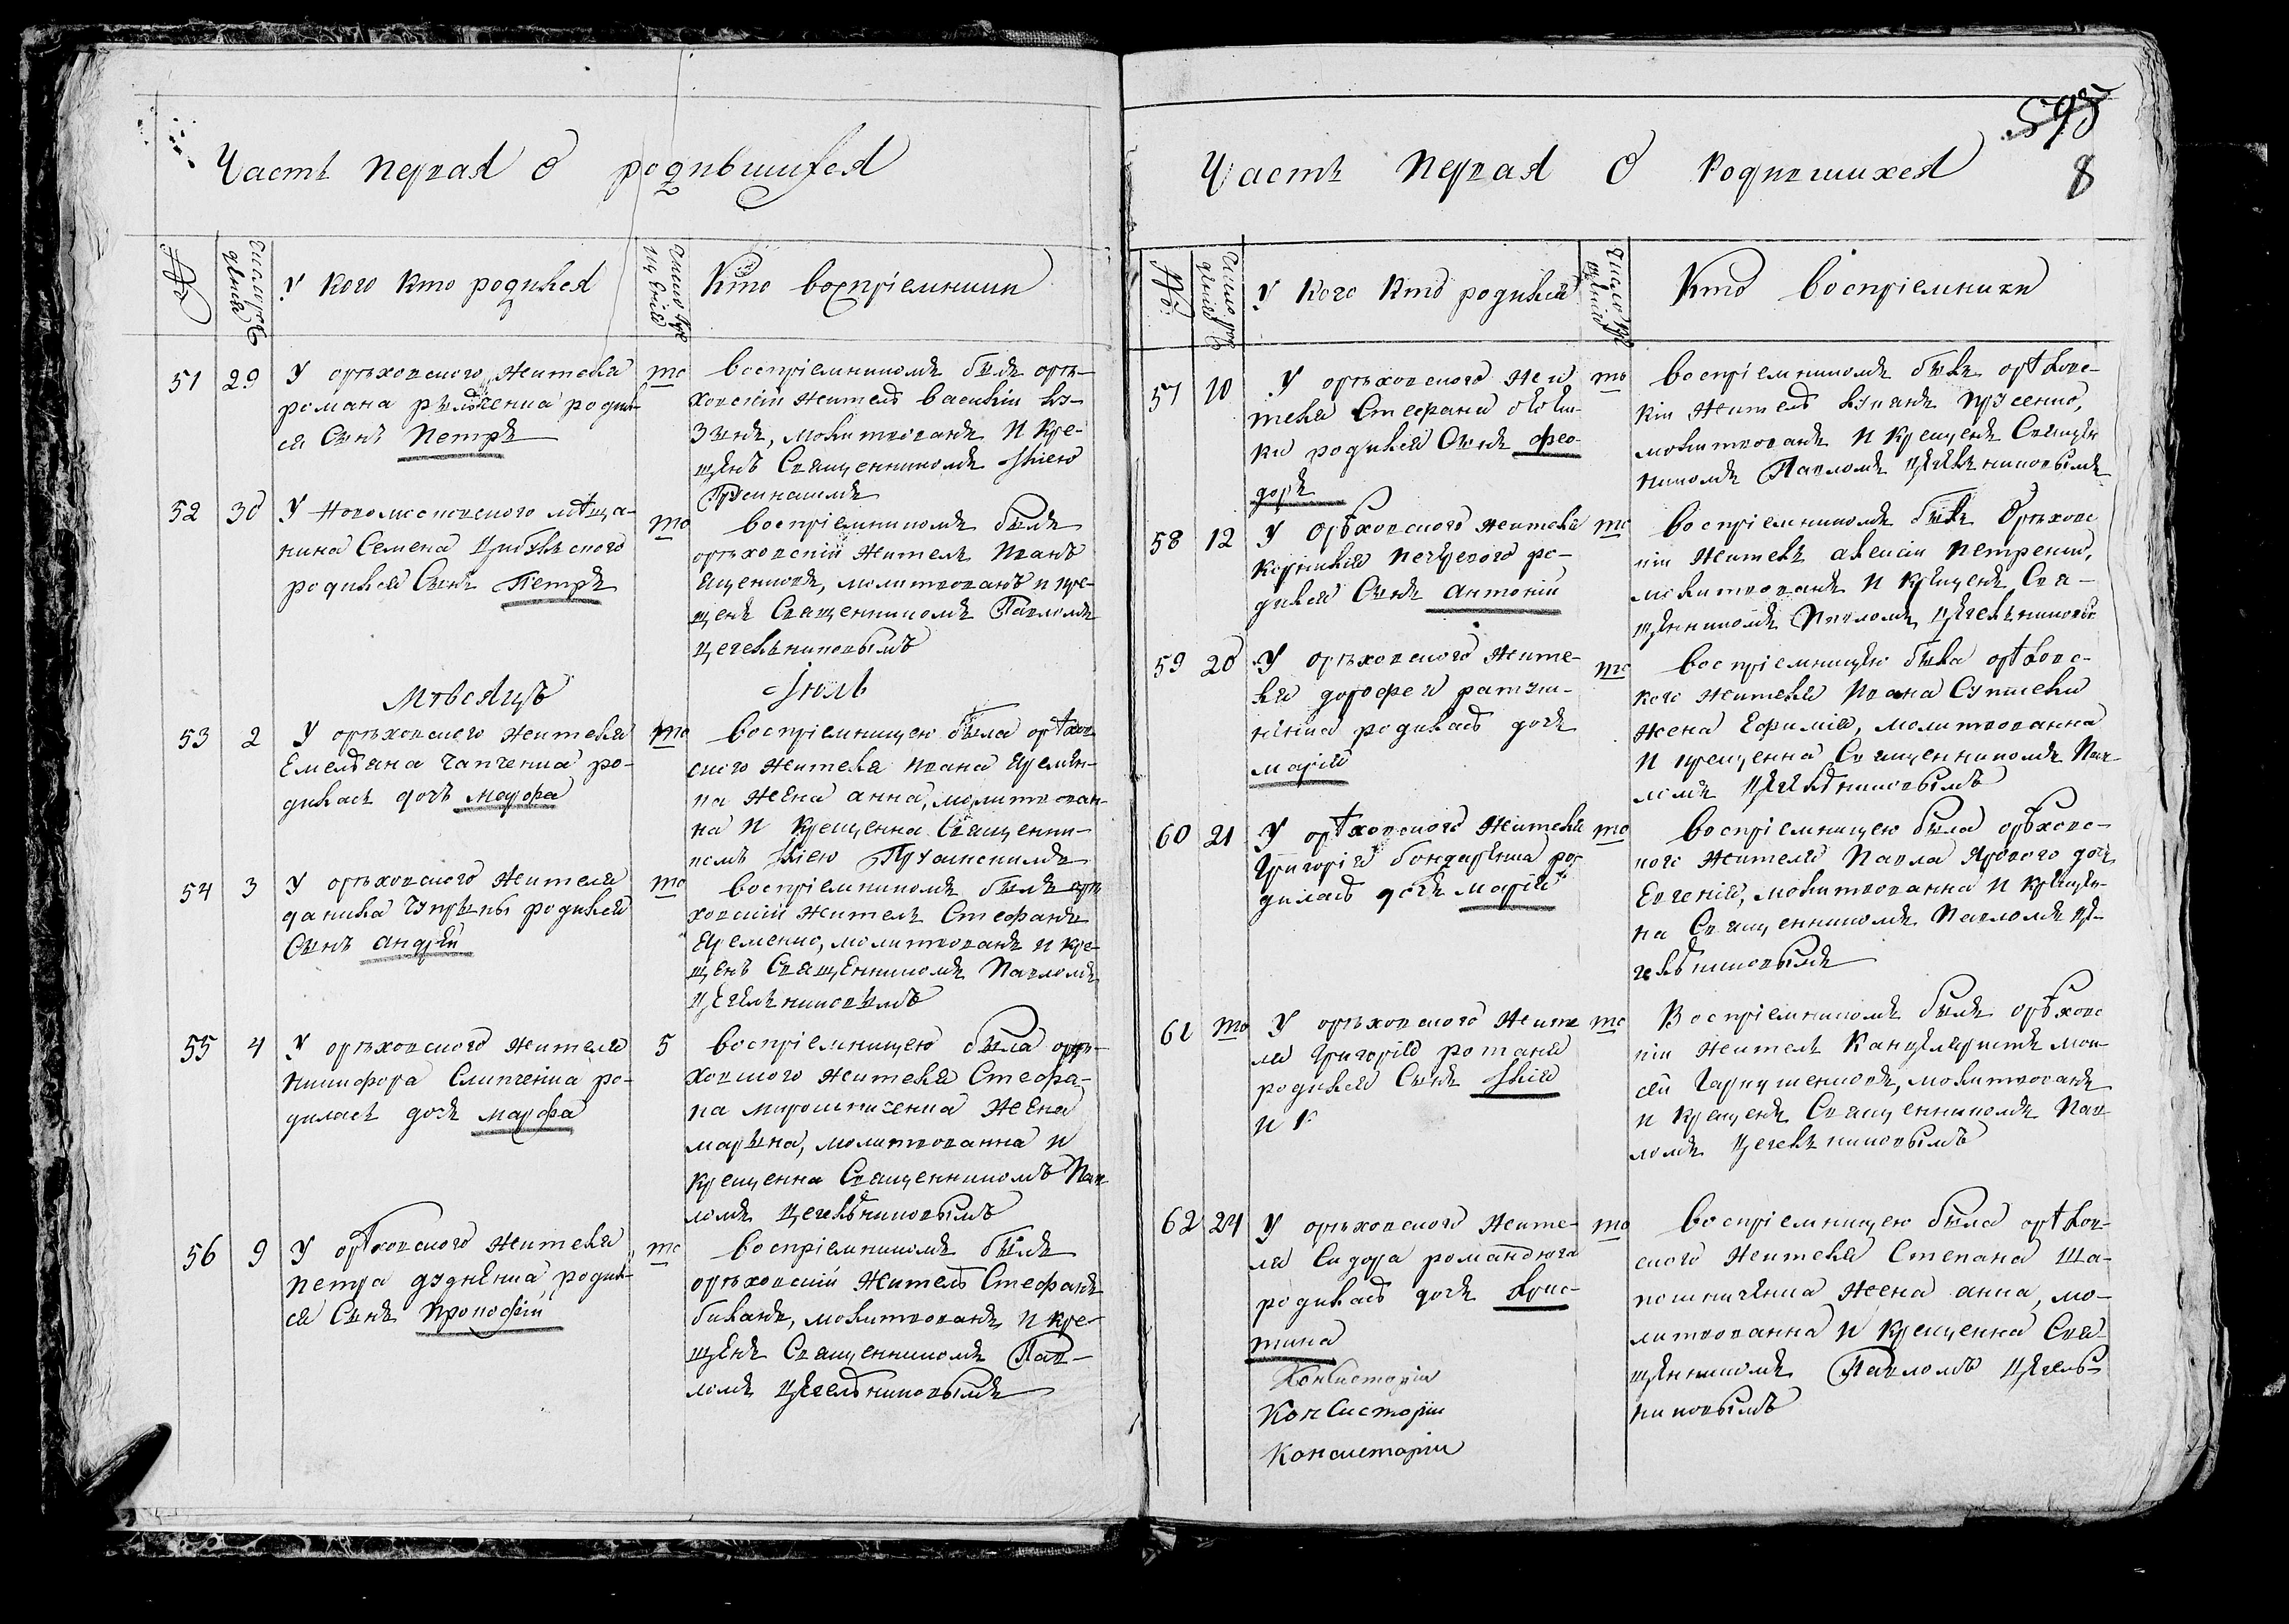 Часть первая о родившихся
№
Число рож
денія
У кого кто родился
Число кре
щенія
Кто воспріемники
51
29
У орѣховского жителя
романа родил-
ся Сынъ Петръ
то
воспріемникомъ былъ орѣ-
ховскій житель василій
молитвованъ и кре-
щенъ Священникомъ Іліею
52
30
У Новомосковского мѣща-
нина Семена
родился Сынъ Петръ
то
воспріемникомъ былъ
орѣховскій житель Иванъ
Ященковъ, молитвованъ и кре-
щенъ Священникомъ Павломъ
Цегельниковымъ
Мѣсяцъ
Іюль
53
2
У орѣховского жителя
Емельяна чапченка ро-
дилась дочь марфа
то
воспріемницею была орѣхов
ского жителя ивана Яремен-
ка жена анна, молитвован-
на и крещенна Священни-
комъ Іліею
54
3
У орѣховского жителя
данила чупрыны родился
Сынъ андрей
то
воспріемникомъ былъ орѣ
ховскій житель Стефанъ
Яременко, молитвованъ и кре-
щенъ Священникомъ Павломъ
Цегельниковымъ
55
4
У орѣховского жителя
никифора Слипченка ро-
дилась дочь марфа
5
воспріемницею была орѣ-
ховского жителя Стефа-
на мирошниченка жена
марына, молитвованна и
крещенна Священникомъ Пав-
ломъ Цегельниковымъ
56
9
У орѣховского жителя
петра дудченка, родил-
ся Сынъ Прокофій
то
воспріемникомъ былъ
орѣховскій житель Стефанъ
биланъ, молитвованъ и кре-
щенъ Священникомъ Пав-
ломъ Цегельниковымъ
595
8
Часть первая о Родившихся
№
Число рож
денія
У кого кто родился
Число кре
щенія
Кто воспріемники
57
10
У орѣховского жи
теля Стефана
родился Сынъ фео-
доръ
то
воспріемникомъ былъ орѣховс-
кій житель
молитвованъ и крещенъ Священ
никомъ Павломъ Цегельниковымъ
58
12
У орѣховского жителя
корнилія ро-
дился Сынъ антоній
то
воспріемникомъ былъ орѣховс
кій житель алексій петренко,
молитвованъ и крещенъ Свя-
щенникомъ Павломъ Цегельниковы
59
20
У орѣховского жите-
ля дорофея
родилась дочь
марія
то
воспріемницею была орѣховс-
кого жителя Ивана
жена Ефимія, молитвованна
и крещенна Священникомъ Пав-
ломъ Цегельниковымъ
60
21
У орѣховского жителя
Григорія бондаренка ро
дилась дочь марія
то
воспріемницею была орѣховс-
кого жителя Павла Ярового дочь
Евгенія, молитвованна и крещен-
на Священникомъ Павломъ Це-
гельниковымъ
61
то
У орѣховского жите
ля Григорія ротаня
родился Сынъ Ілія
то
Воспріемникомъ былъ орѣховс
кій житель Канцеляристъ мои-
сей молитвованъ
и крещенъ Священникомъ Пав
ломъ Цегельниковымъ
62
24
У орѣховского жите-
ля Сидора романдюга
родилась дочь хрис-
тина
то
воспріемницею была орѣхов-
ского жителя Степана Ша-
жена анна, мо-
литвованна и крещенна Свя-
щенникомъ Павломъ Цегель-
никовымъ
Консисторіи
Консисторіи
Консисторіи